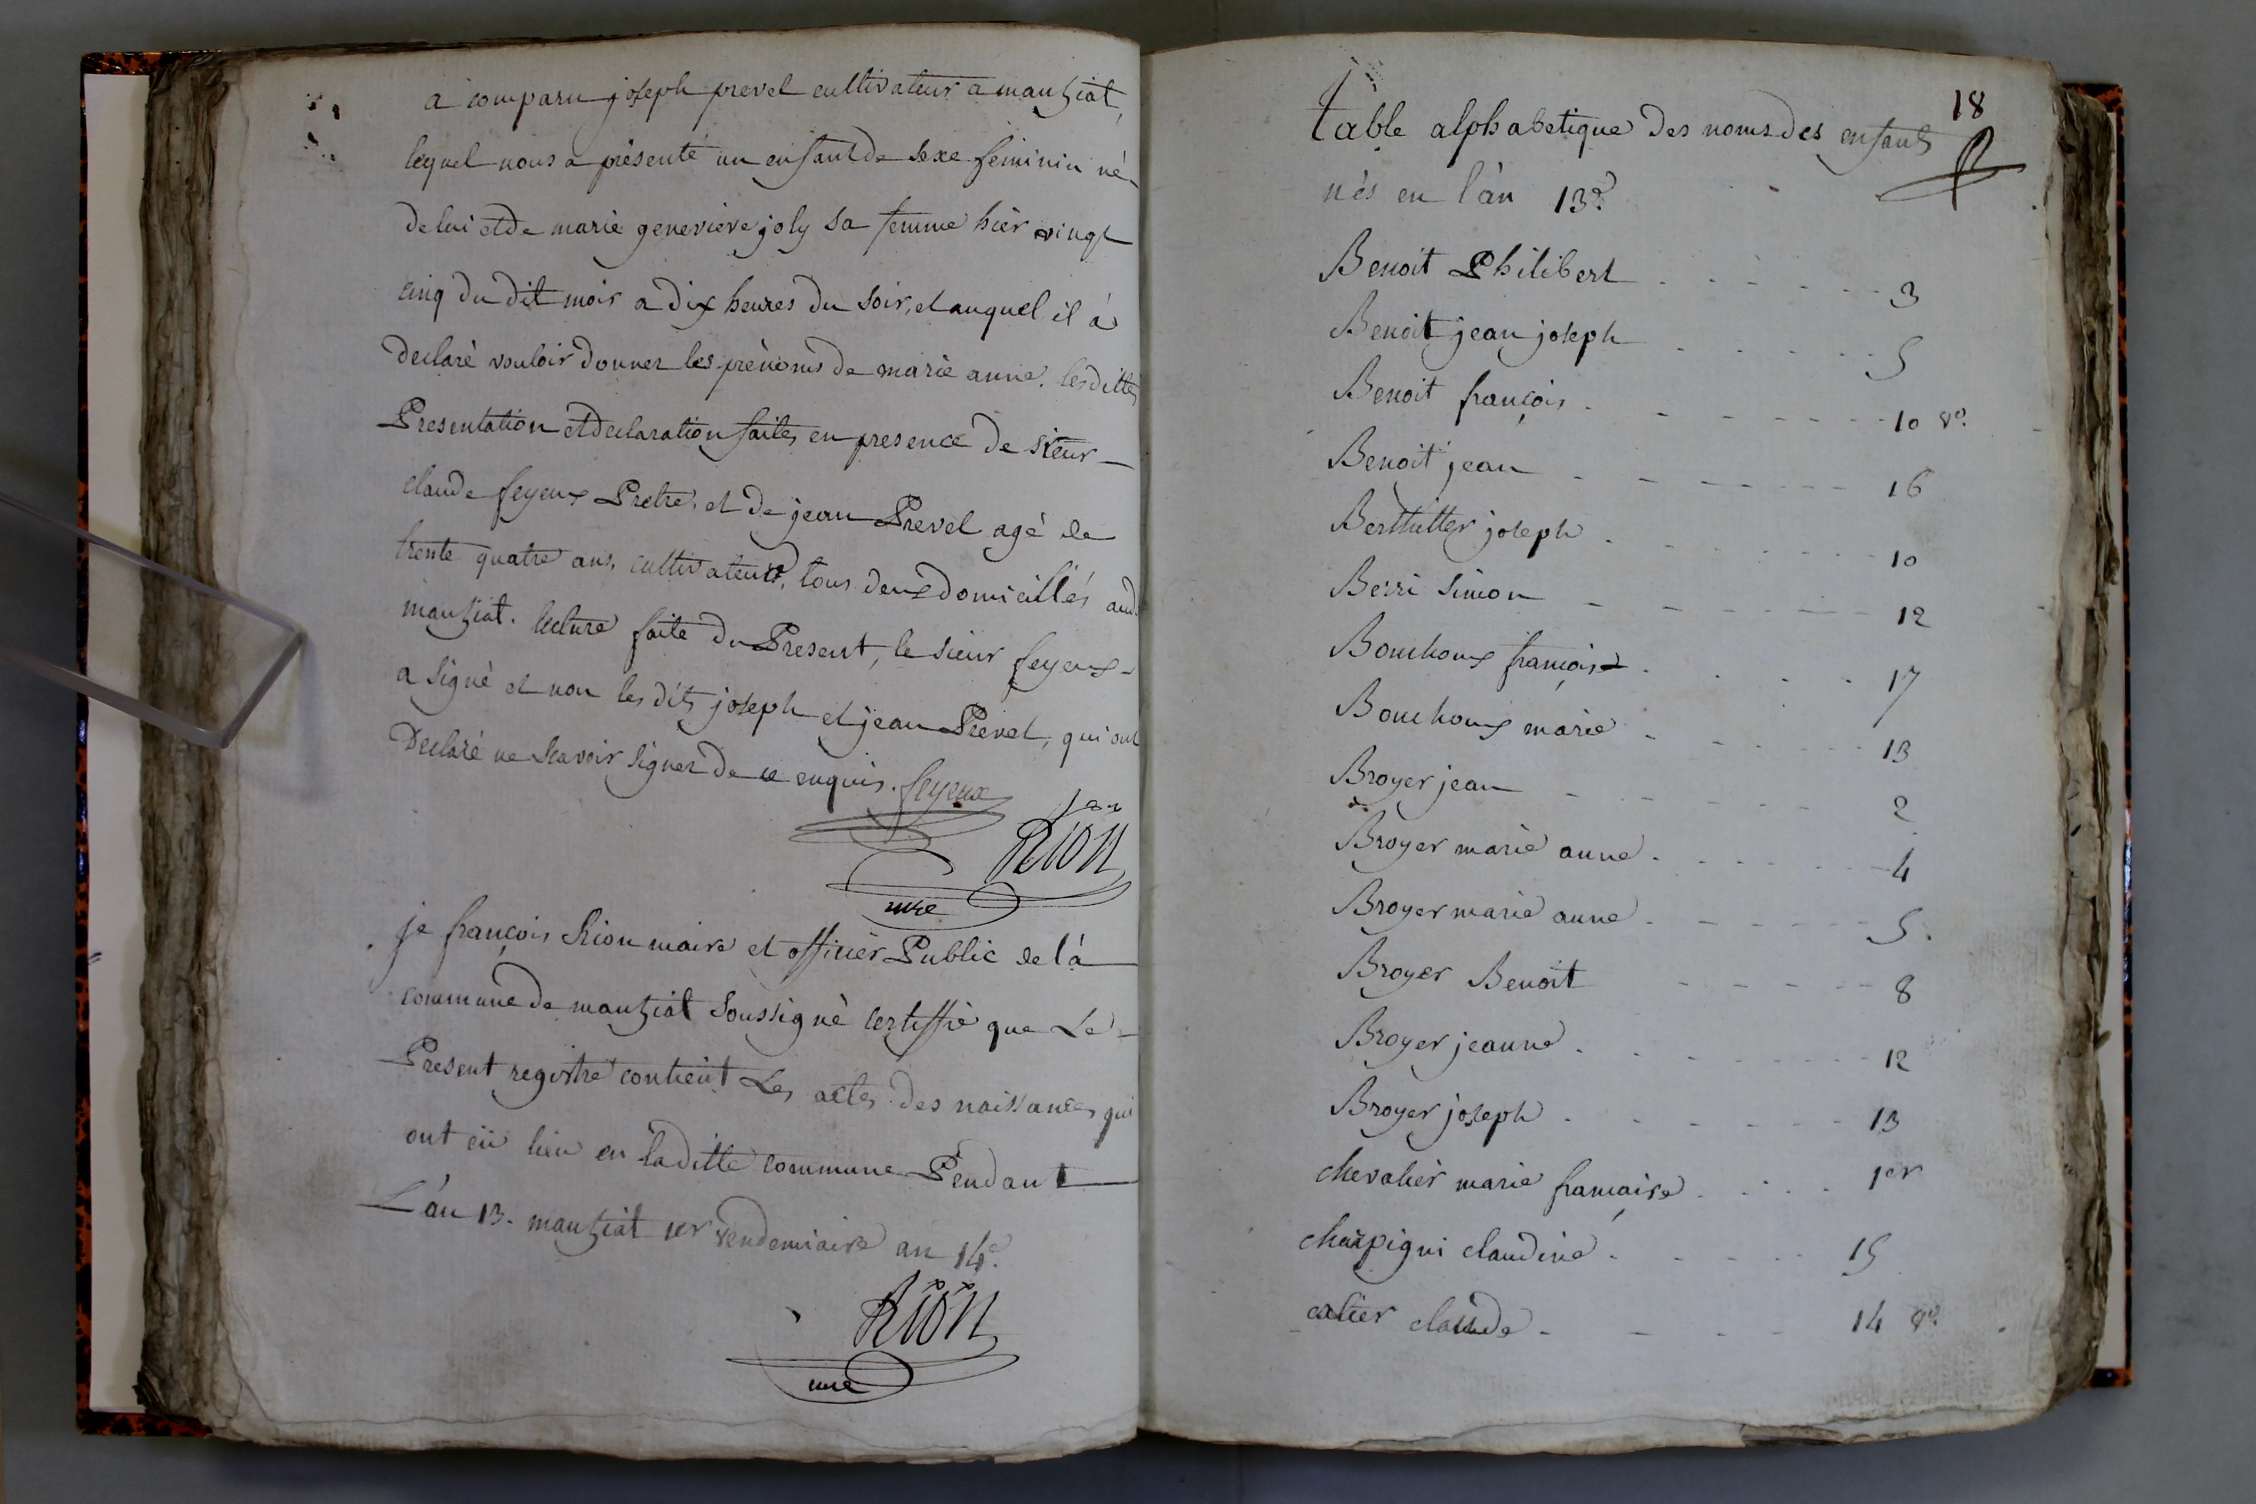 a comparu joseph prevel cultivateur a mantziat,
lequel nous a présenté un enfant de sexe féminin né
de lui et de marie geneviève joly sa femme hier vingt
cinq du dit mois a dix heures du soir, et auquel il à
declaré vouloir donner les prénoms de marie anne. lesdittes
Presentation et declaration faites en presence de sieur
claude feyeux Pretre, et de jean Prevel agé de
trente quatre ans, cultivateur, tous deux domicillés aud.
mantziat. lecture faite du Present, le sieur feyeux
a signé et non les dits joseph et jean Prevel, qui ont
Declaré ne scavoir signer de ce enquis. feyeux
Rion
mre
je françois Rion maire et officier Public de la
commune de mantziat soussigné certiffie que Le
Present registre contient Les actes des naissances qui
ont eü lieu en laditte commune Pendant
L'an 13. mantziat 1er vendemiaire an 14e.
Rion
mre
18
table alphabetique des noms des enfants
nés en l'an 13e
Benoit Philibert 3
Benoit jean joseph 5
Benoit françois 10 vo.
Benoit jean 16
Berthillier joseph 10
Berri simon 12
Bouchoux françoise 17
Bouchoux marie 13
Broyer jean 2
Broyer marie anne 4
Broyer marie anne 5.
Broyer Benoit 8
Broyer jeanne 12
Broyer joseph 13
chevalier marie françoise 1er
charpigni claudine 15
catier claude 14 vo.